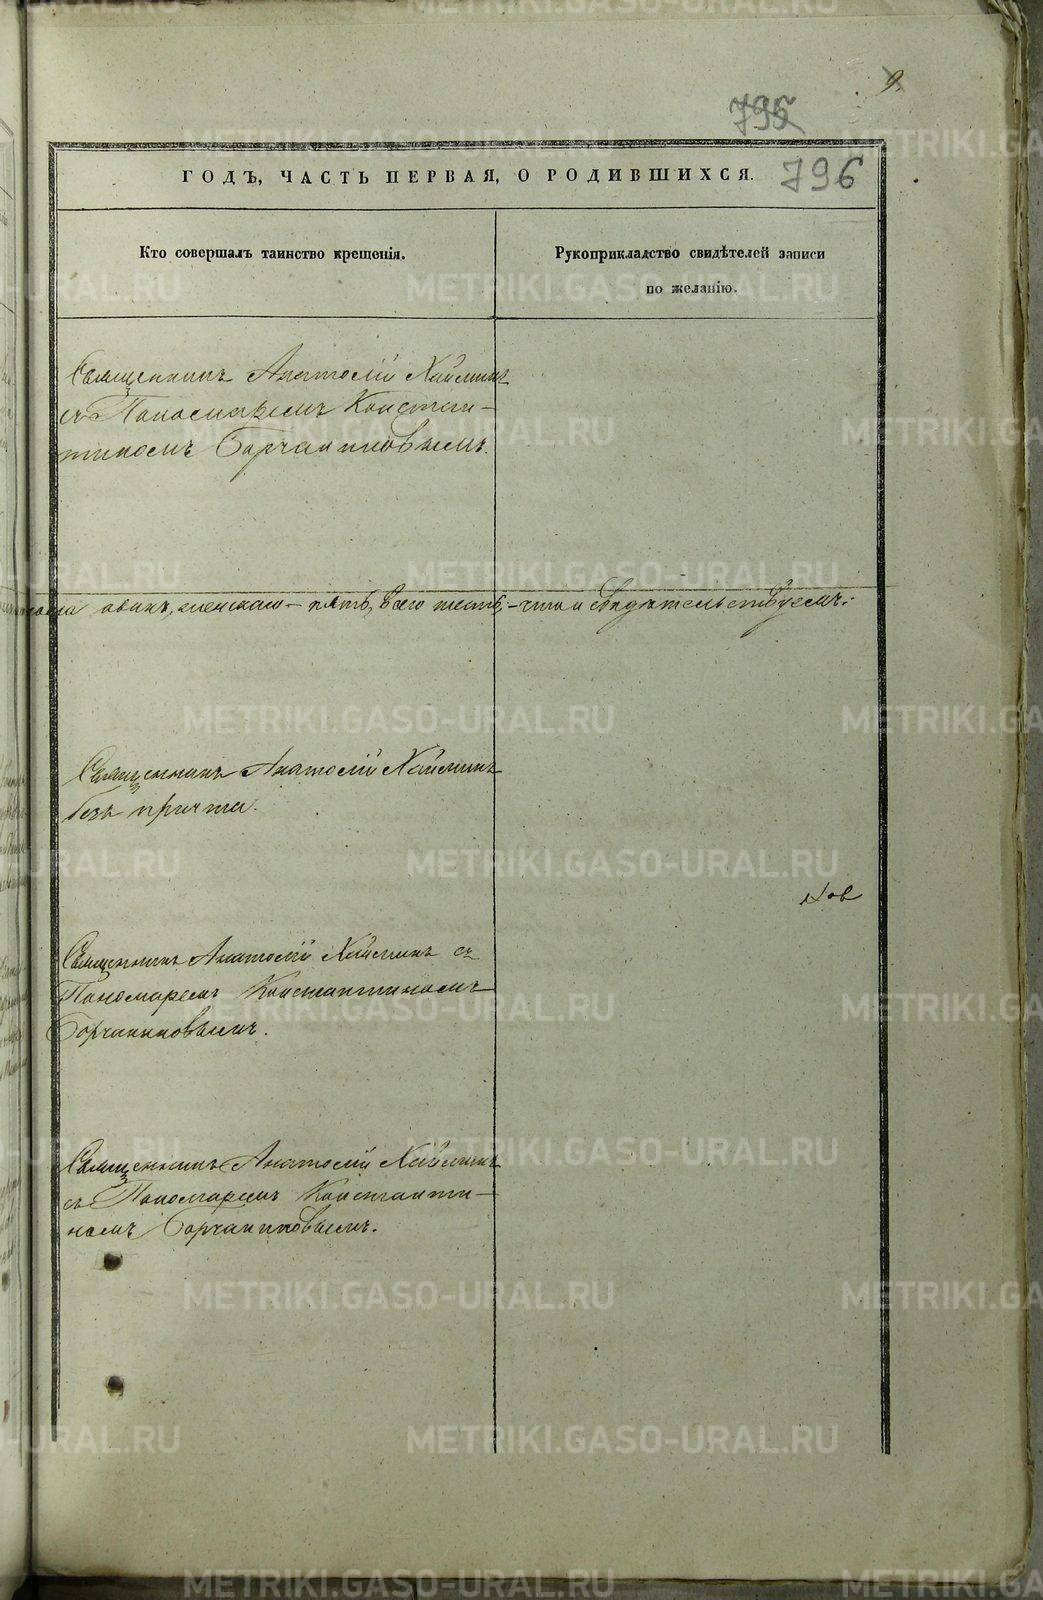 9.
795
796
ГОДЪ, ЧАСТЬ ПЕРВАЯ, О РОДИВШИХСЯ.
Кто совершалъ таинство крещенія.
Рукоприкладство свидѣтелей записи
по желанію.
Священникъ Анатолій Хаймин
съ Пономаремъ Констан-
тиномъ Борчаниновымъ.
одинъ, женскаго - пять, всего шесть, - что и свидѣтельствуемъ:
Священникъ Анатолій Хайминъ
безъ причта.
Священникъ Анатолій Хайминъ съ
Пономаремъ Константиномъ
Борчаниновымъ.
Священникъ Анатолій Хайминъ
съ Пономаремъ Константи-
номъ Борчаниновымъ.
METRIKI.GASO-URAL.RU